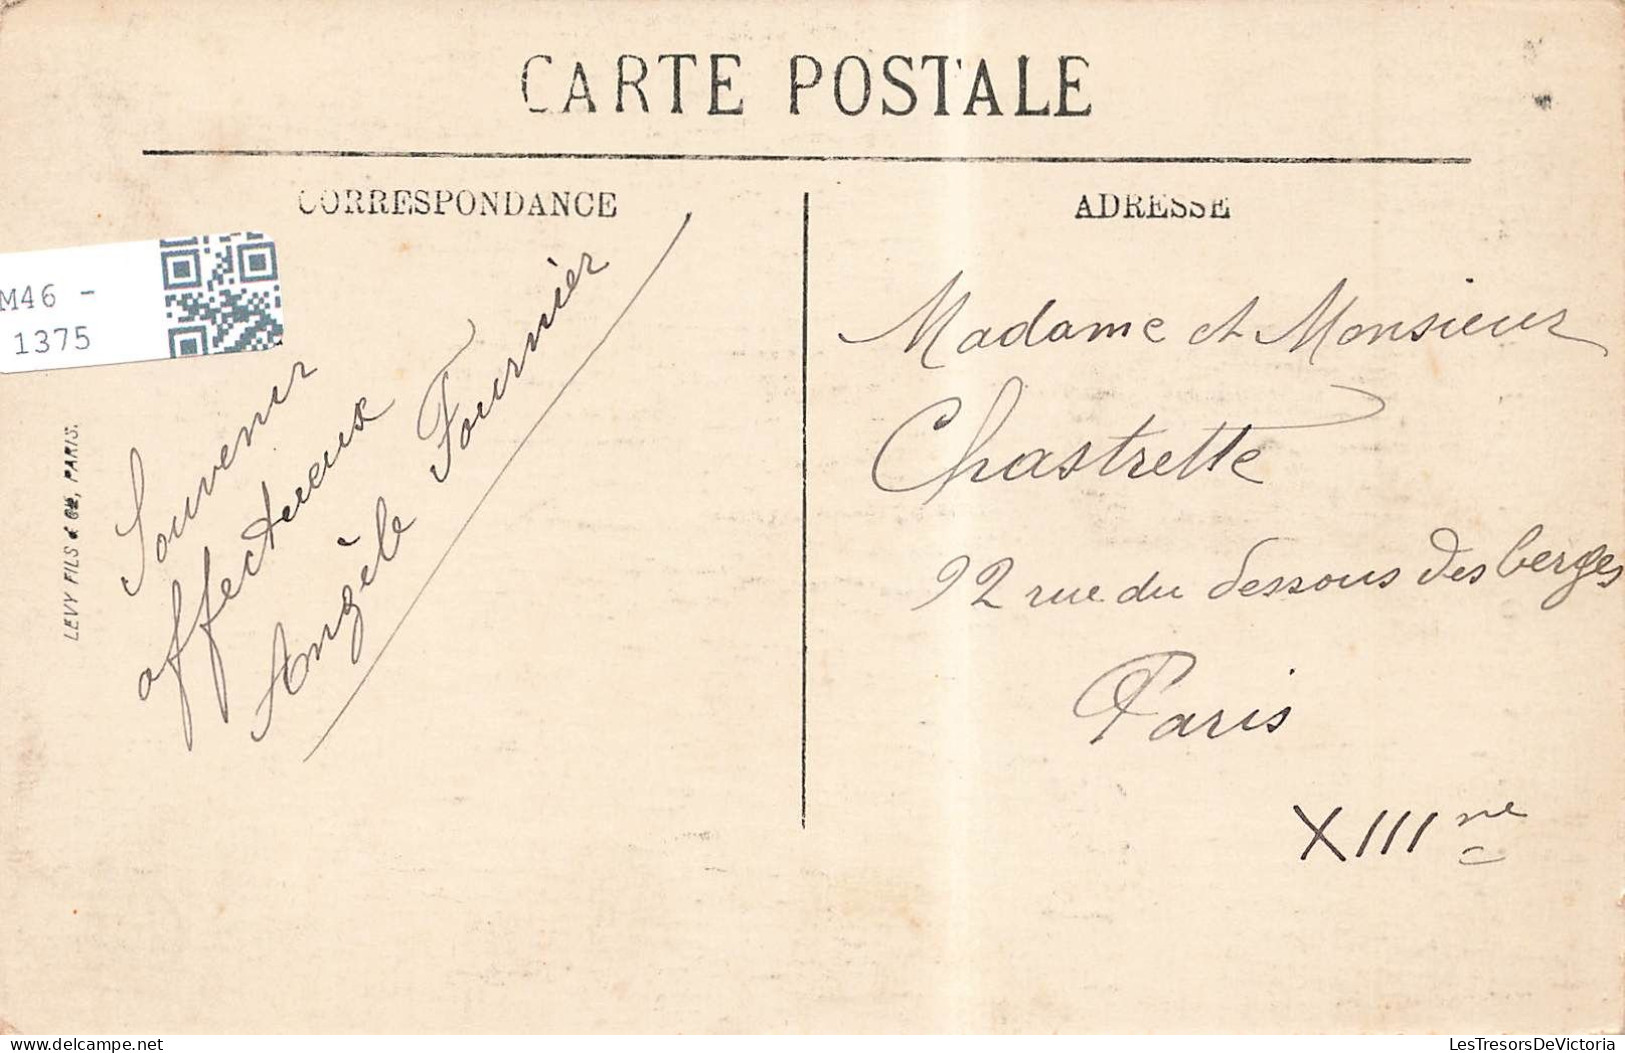 CARTE POSTALE
CORRESPONDANCE
ADRESSE
M46 -
1375
LEVY FILS & Cie, PARIS.
Souvenir
affectueux
Angèle Fournier
Madame et Monsieur
Chastrette
92 rue du dessous des berges
Paris
XIIIme
delcampe.net
LesTresorsDeVictoria